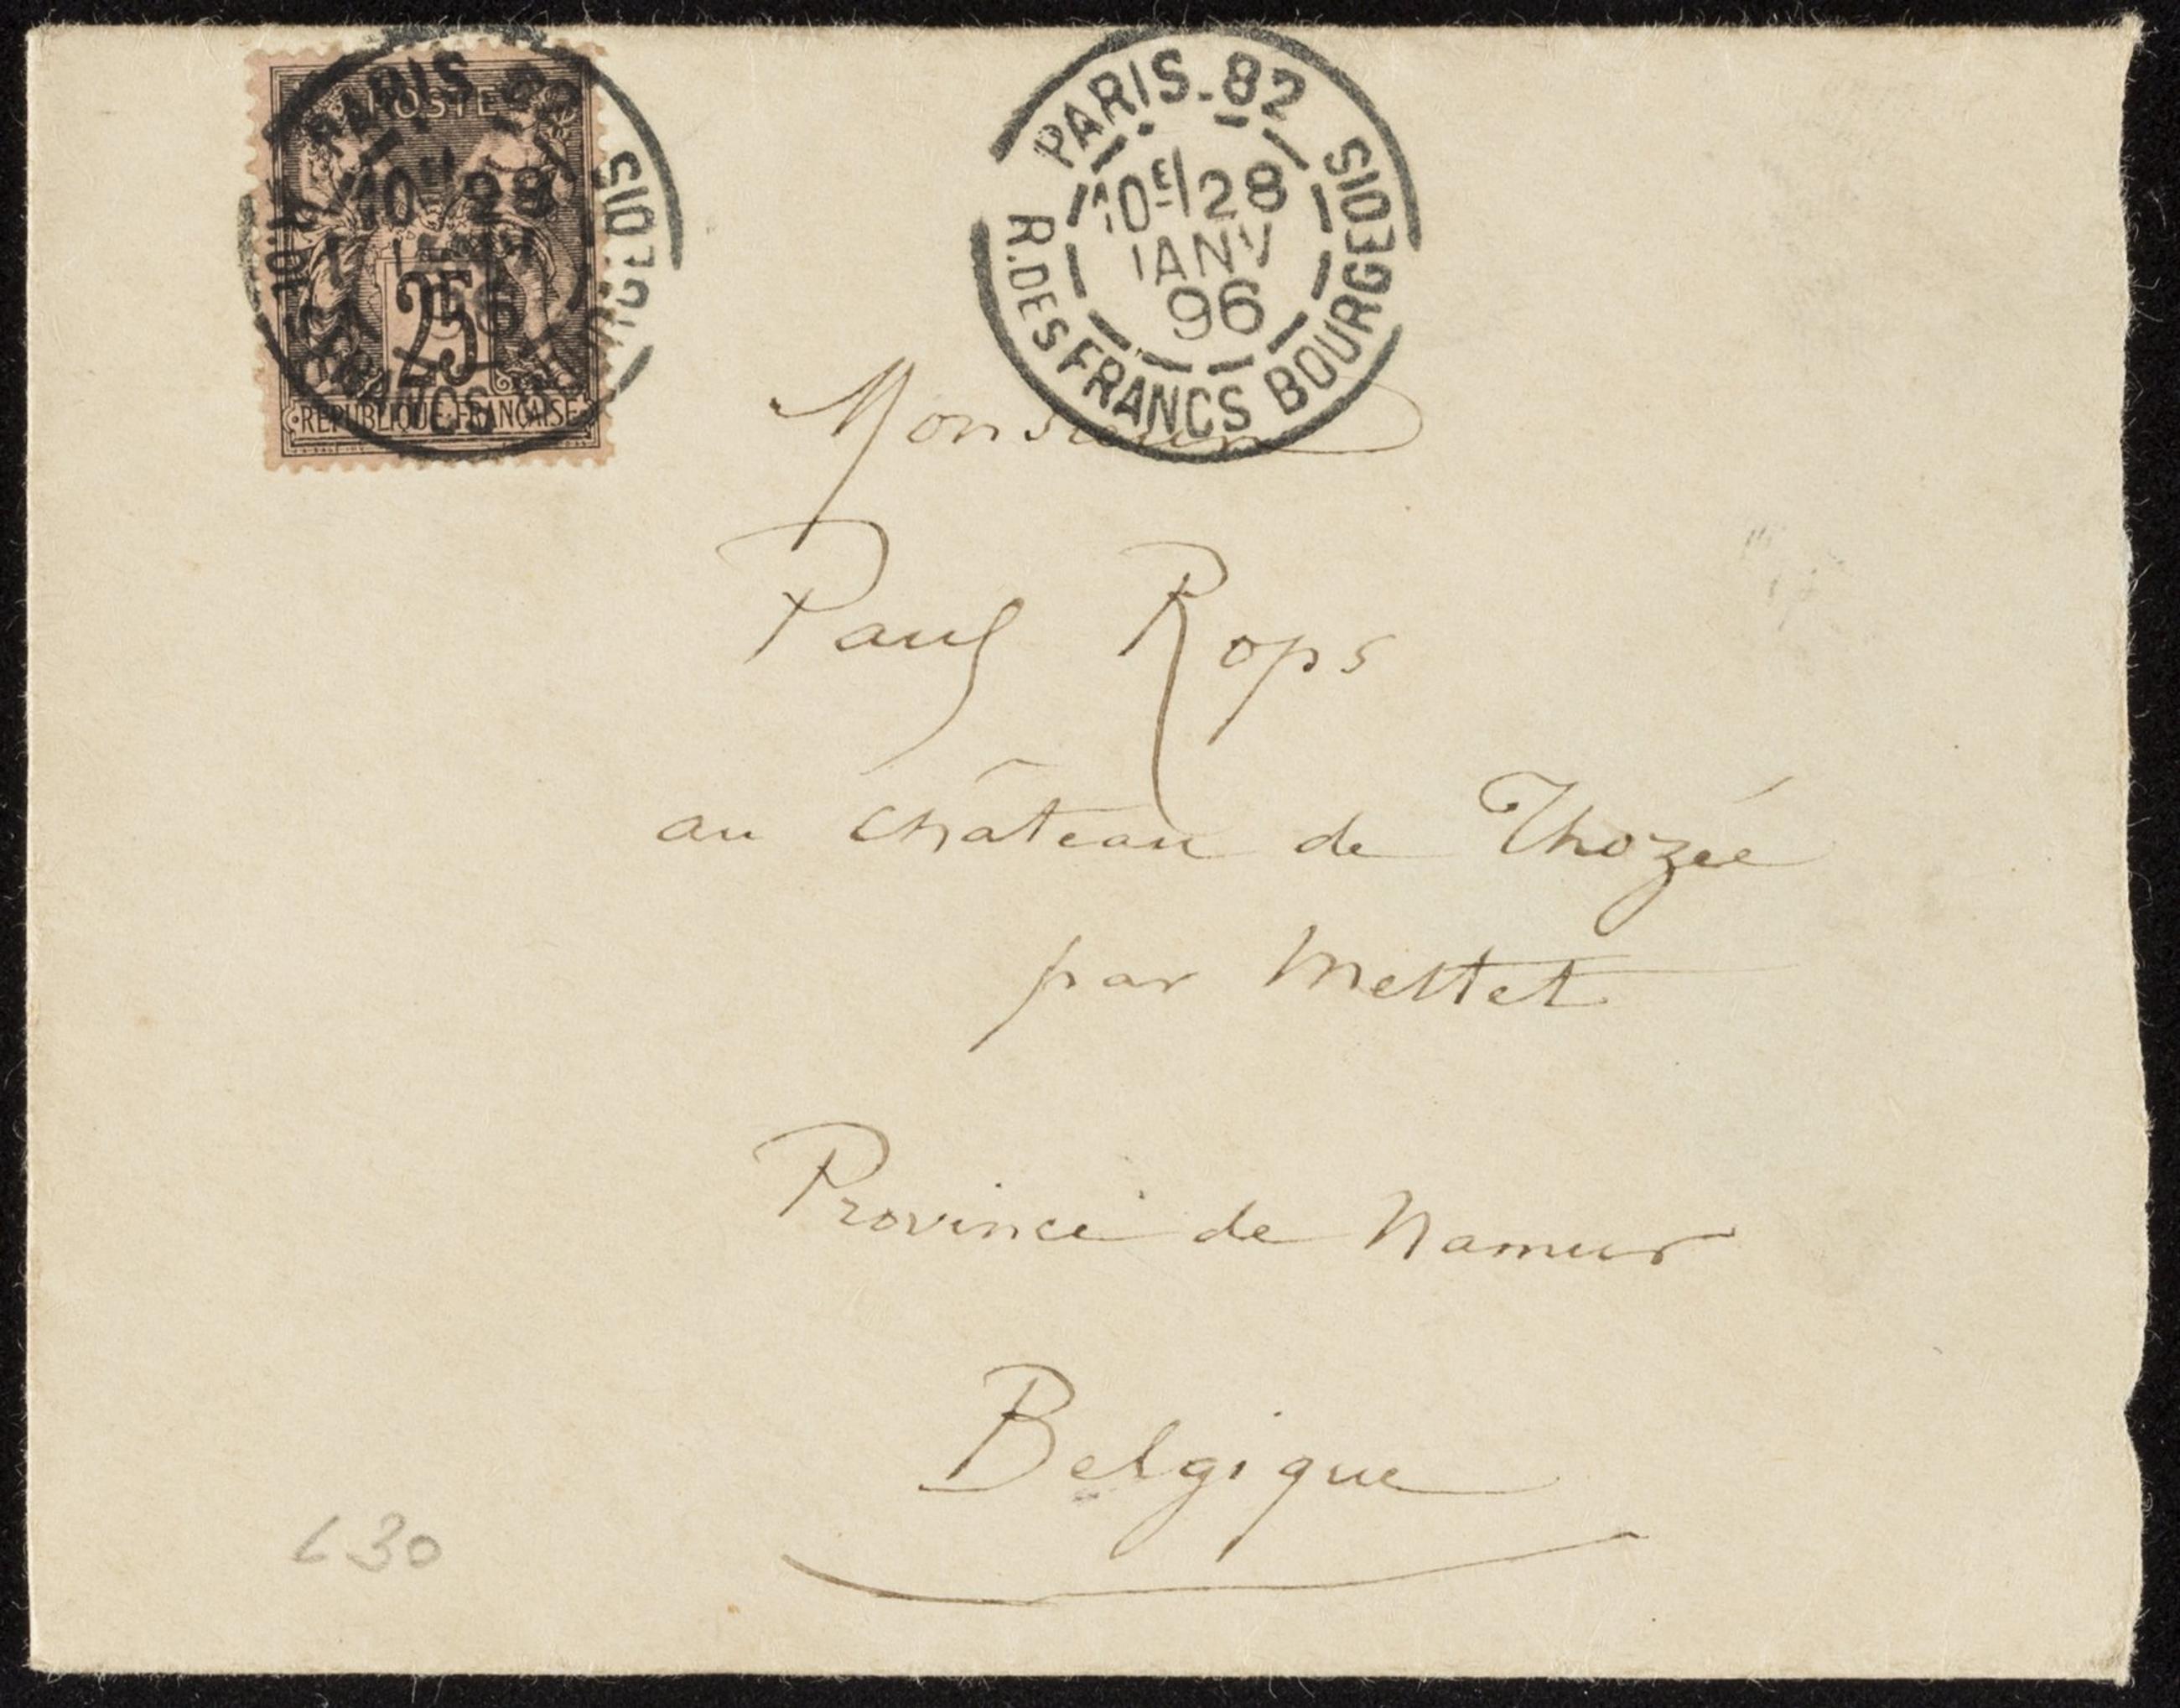 POSTES
25
REPUBLIQUE FRANCAISE
PARIS-82
10E 28
JANV
96
R. DES FRANCS BOURGEOIS
Monsieur
Paul Rops
au château de Thozée
par Mettet
Province de Namur
Belgique
L30